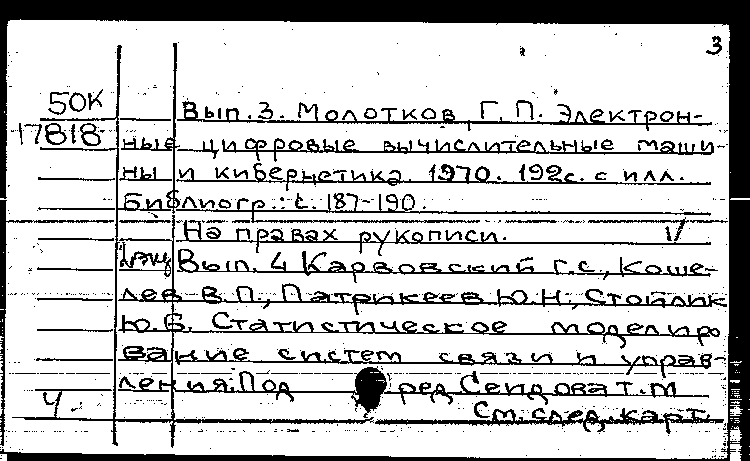 3
50К
17818
Вып. 3. Молотков, Г. П. Электрон-
ные цифровые вычислительные маши-
ны и кибернетика. 1970. 192с. с илл.
Библиогр.: с. 187-190.
На правах рукописи. V
Вып. 4 Карвовский Г.С., Коше-
лев В.П., Патрикеев Ю.Н., Стойлик
Ю.Б. Статистическое моделиро
вание систем связи и управ-
ления. Под ред. Сеидова Т.М
Ч.
См. след. карт.